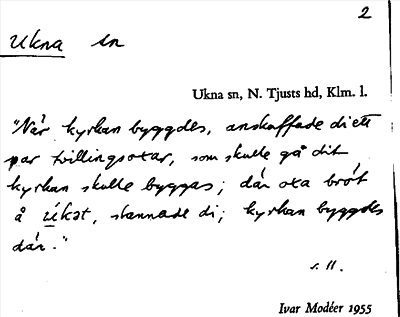 2
Ukna sn
Ukna sn, N. Tjusts hd, Klm. l.
"När kyrkan byggdes, anskaffade di ett
par tvillingsoxar, som skulle gå dit
kyrkan skulle byggas; där oxa bröt
å úkǝt, stannade di; kyrkan byggdes
där."
s. 11.
Ivar Modéer 1955